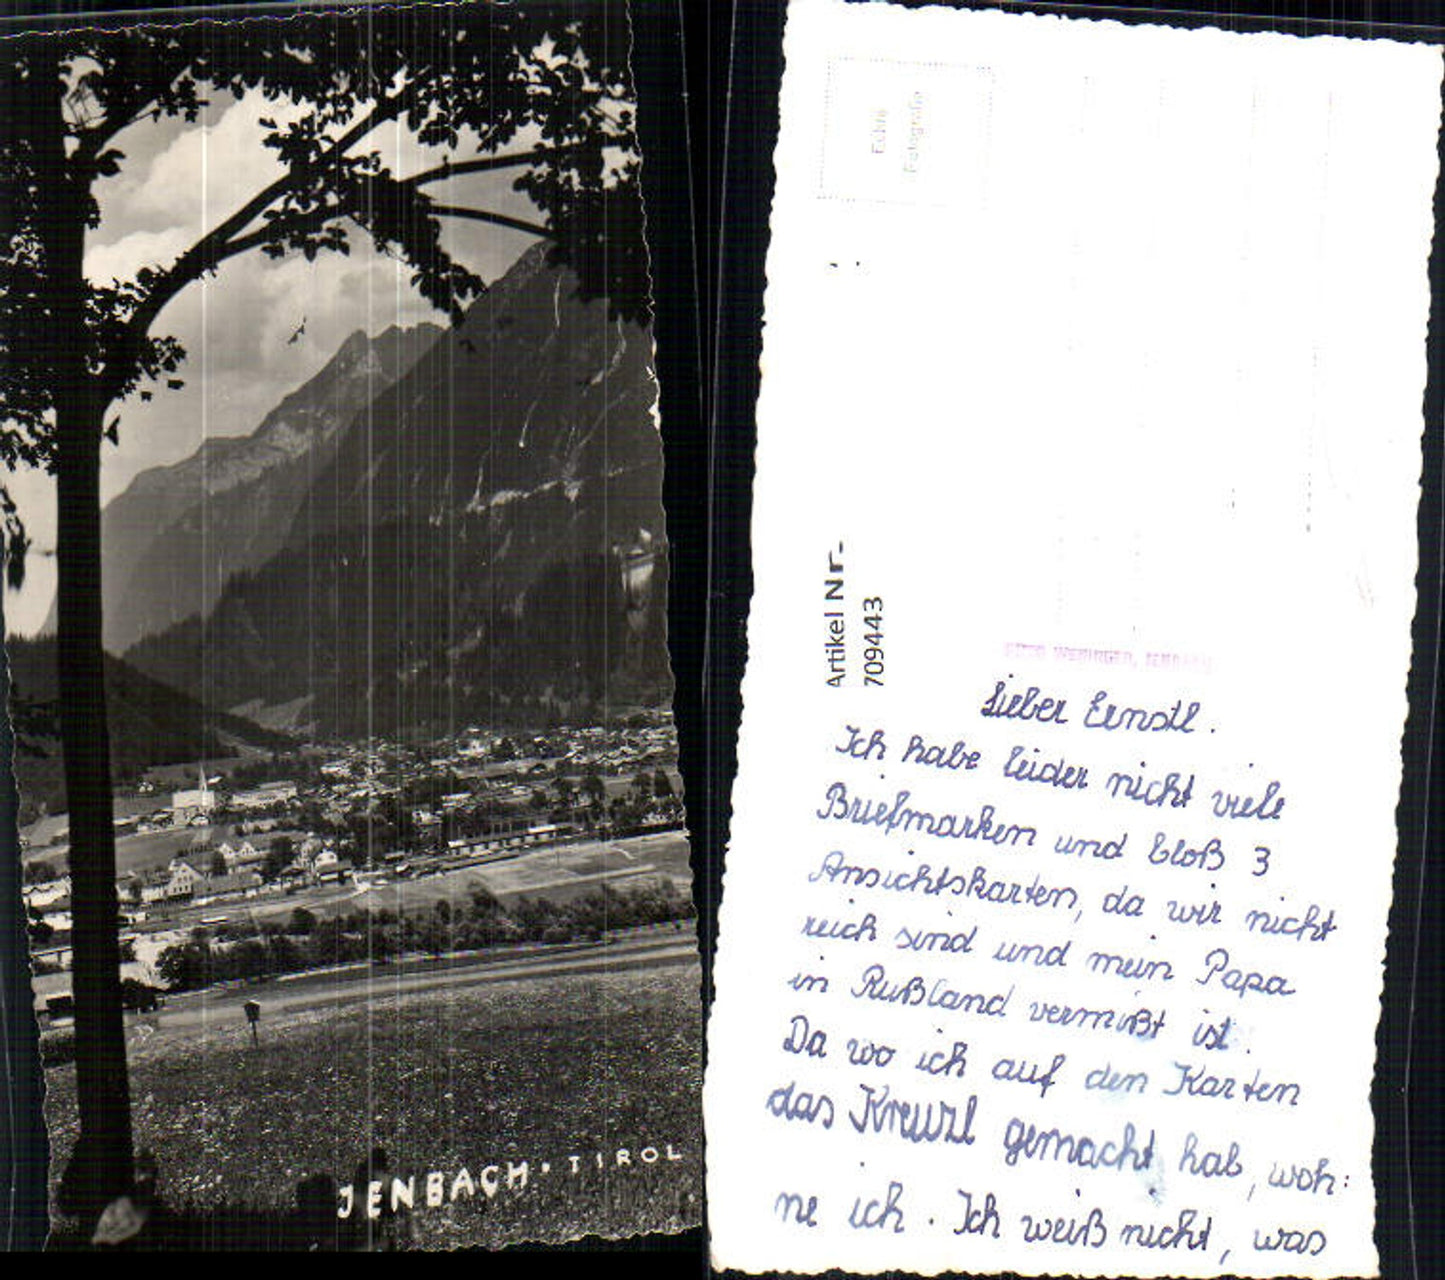 JENBACH · TIROL
Echte
Fotografie
Artikel Nr.
709443
Lieber Ernstl.
Ich habe leider nicht viele
Briefmarken und bloß 3
Ansichtskarten, da wir nicht
reich sind und mein Papa
in Rußland vermißt ist.
Da wo ich auf den Karten
das Kreuzl gemacht hab, woh:
ne ich. Ich weiß nicht, was